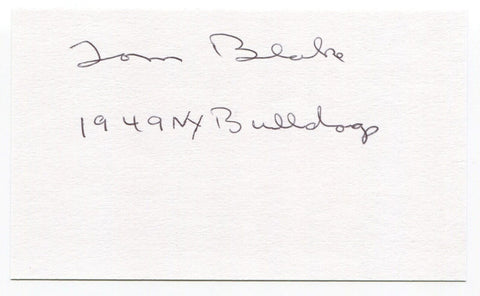 Tom Blake
1949 NY Bulldogs